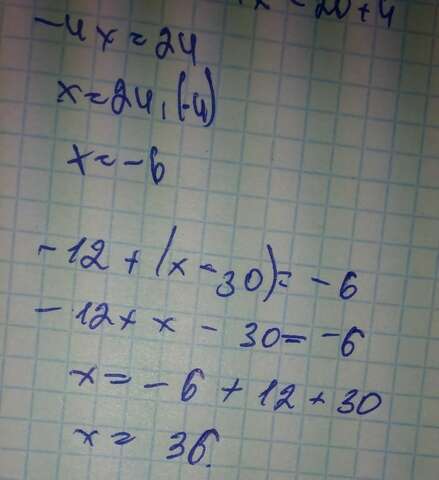 x = 20 + 4
-4x = 24
x = 24 : (-4)
x = -6
-12 + (x - 30) = -6
-12 + x - 30 = -6
x = -6 + 12 + 30
x = 36.